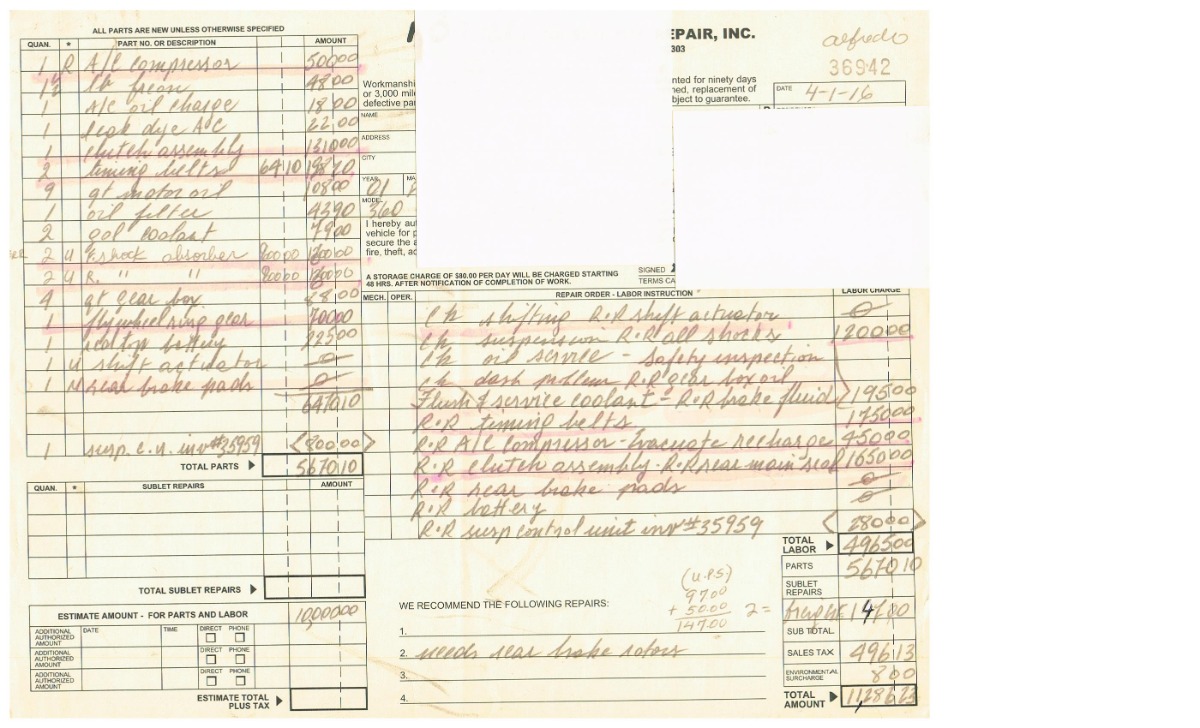 ALL PARTS ARE NEW UNLESS OTHERWISE SPECIFIED
QUAN. * PART NO. OR DESCRIPTION AMOUNT
1 R A/C compressor 500 00
lb freon 48 00
1 A/C oil charge 18 00
1 leak dye A/C 22 00
1 clutch assembly 1310 00
2 timing belts 64 10 70
9 qt motor oil 108 00
1 oil filter 43 90
2 gal coolant 79 00
2 U F. shock absorber 800 00 00
2 U R. " " 800 00 00
4 qt gear box 88 00
1 flywheel ring gear 700 00
1 battery 225 00
1 U shift actuator 0
1 U rear brake pads 0
6470 10
1 susp. c.u. inv #35959 <800 00>
TOTAL PARTS 5670 10
QUAN. * SUBLET REPAIRS AMOUNT
TOTAL SUBLET REPAIRS
ESTIMATE AMOUNT - FOR PARTS AND LABOR 10,000 00
ADDITIONAL AUTHORIZED AMOUNT DATE TIME DIRECT PHONE
ADDITIONAL AUTHORIZED AMOUNT DIRECT PHONE
ADDITIONAL AUTHORIZED AMOUNT DIRECT PHONE
ESTIMATE TOTAL PLUS TAX
EPAIR, INC.
303
alfredo
36942
DATE 4-1-16
Workmanshi
or 3,000 mile
defective par
nted for ninety days
ned, replacement of
bject to guarantee.
NAME
ADDRESS
CITY
YEAR 01 MA
MODEL 360
I hereby au
vehicle for p
secure the a
fire, theft, ac
A STORAGE CHARGE OF $80.00 PER DAY WILL BE CHARGED STARTING
48 HRS. AFTER NOTIFICATION OF COMPLETION OF WORK.
SIGNED
TERMS CA
MECH. OPER. REPAIR ORDER - LABOR INSTRUCTION LABOR CHARGE
Ch shifting R+R shift actuator 0
Ch suspension R+R all shocks 1200 00
Ch oil service - Safety inspection
Ch dash problem R+R gear box oil
Flush & service coolant - R+R brake fluid 195 00
R+R timing belts 1750 00
R+R A/C compressor - Evacuate recharge 450 00
R+R clutch assembly - R+R rear main seal 1650 00
R+R rear brake pads 0
R+R battery 0
R+R susp control unit inv #35959 <280 00>
TOTAL LABOR 4965 00
PARTS 5670 10
SUBLET REPAIRS
freight 147 00
SUB TOTAL
SALES TAX 496 13
ENVIRONMENTAL SURCHARGE 8 00
TOTAL AMOUNT 11,286 23
(UPS)
97 00
+ 50 00 2 =
147 00
WE RECOMMEND THE FOLLOWING REPAIRS:
1.
2. needs rear brake rotors
3.
4.